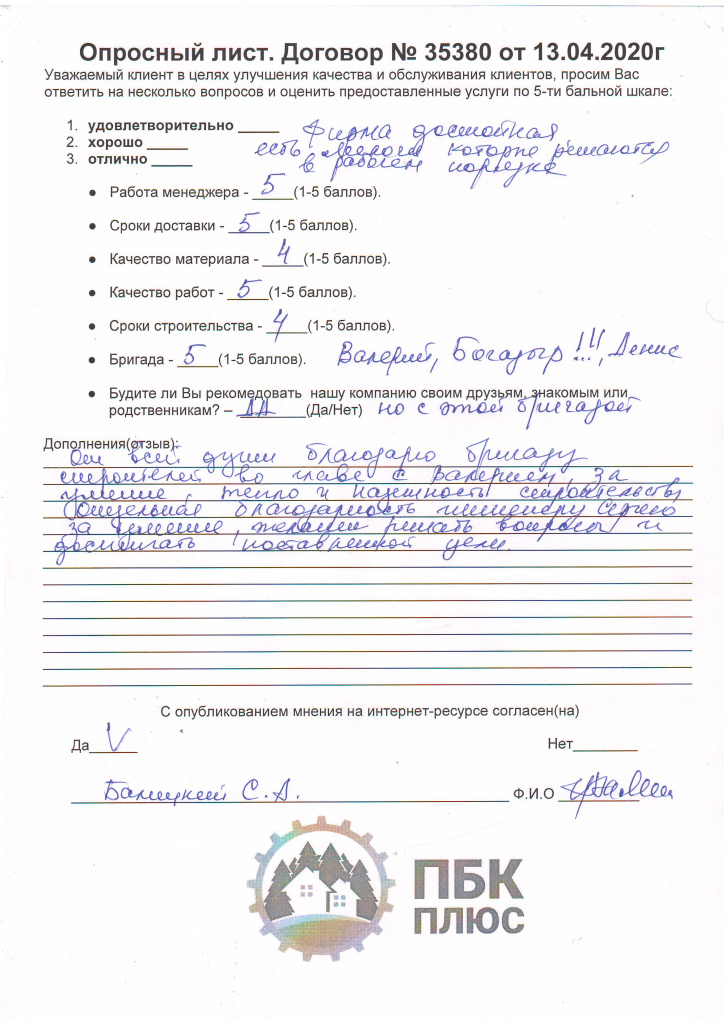 Опросный лист. Договор № 35380 от 13.04.2020г
Уважаемый клиент в целях улучшения качества и обслуживания клиентов, просим Вас
ответить на несколько вопросов и оценить предоставленные услуги по 5-ти бальной шкале:
1. удовлетворительно _____ Фирма достойная
2. хорошо _____ есть мелочи которые решаются
3. отлично _____ в рабочем порядке
● Работа менеджера - 5 (1-5 баллов).
● Сроки доставки - 5 (1-5 баллов).
● Качество материала - 4 (1-5 баллов).
● Качество работ - 5 (1-5 баллов).
● Сроки строительства - 4 (1-5 баллов).
● Бригада - 5 (1-5 баллов). Валерий, Богатыр !!!, Денис
● Будите ли Вы рекомедовать нашу компанию своим друзьям, знакомым или
родственникам? – ДА (Да/Нет) но с этой бригадой
Дополнения(отзыв):
От всей души благодарю бригаду
строителей во главе с Валерием, за
умение, тепло и надежность строительства
Отдельная благодарность инженеру Сергею
за умение, желании решать вопросы и
достигать поставленной цели.
С опубликованием мнения на интернет-ресурсе согласен(на)
Да V Нет
С.А. Ф.И.О
ПБК
ПЛЮС